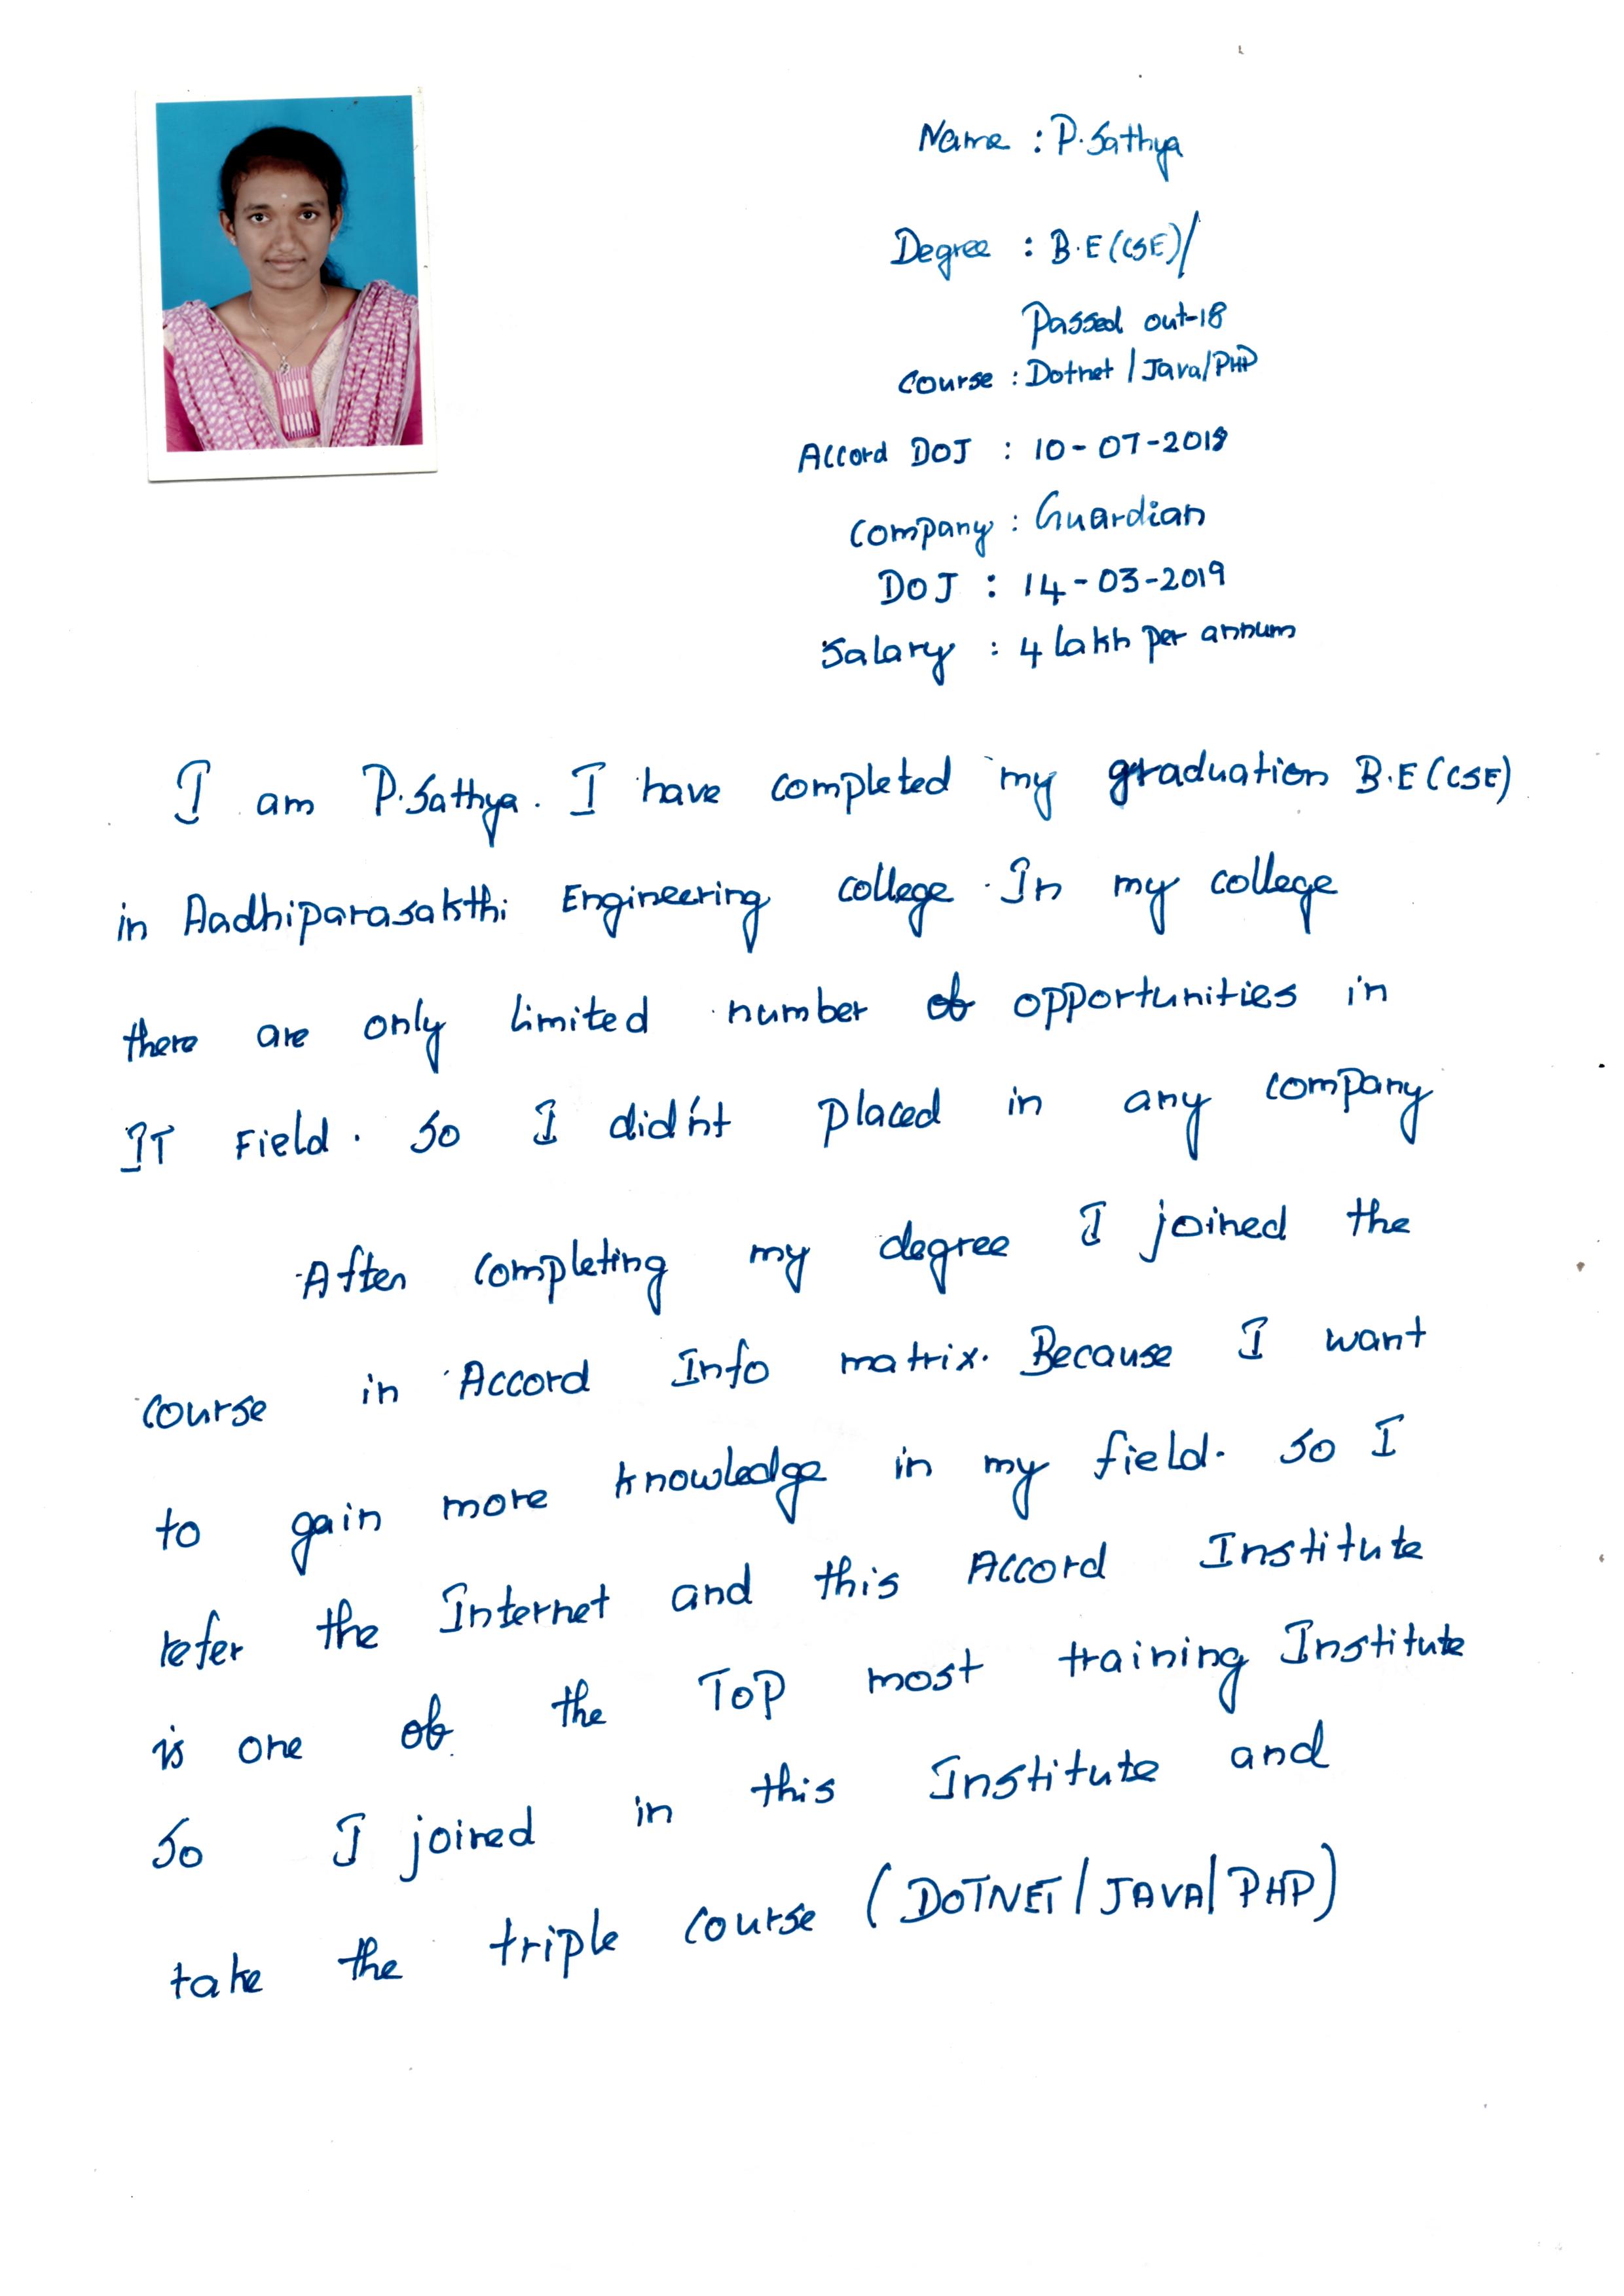 Name : P. Sathya
Degree : B.E (CSE)/
Passed out-18
Course : Dotnet / Java/PHP
Accord DOJ : 10-07-2018
Company : Guardian
DOJ : 14-03-2019
Salary : 4 lakh per annum
I am P. Sathya. I have completed my graduation B.E (CSE)
in Aadhiparasakthi Engineering college. In my college
there are only limited number of opportunities in
IT Field. So I did'nt placed in any company
After completing my degree I joined the
course in Accord Info matrix. Because I want
to gain more knowledge in my field. So I
refer the Internet and this Accord Institute
is one of the Top most training Institute
So I joined in this Institute and
take the triple course (DOTNET/JAVA/PHP)